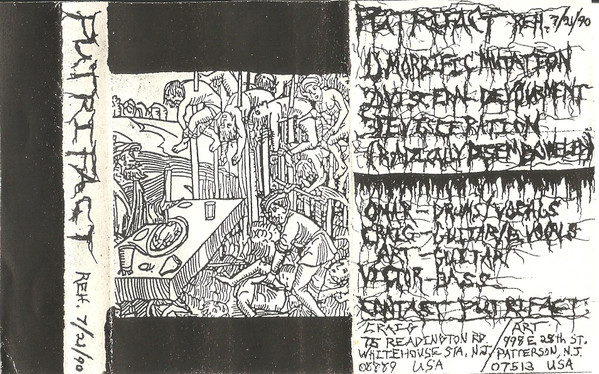 PUTRIFACT REH. 7/21/90
PUTRIFACT REH. 7/21/90
1) MORBIFIC MUTATION
2)
3) EVISCERATION
4)
OMAR - DRUMS/VOCALS
CRAIG - GUITAR/B. VOCALS
ART - GUITAR
VICTOR - BASS
CONTACT PUTRIFACT:
CRAIG
75 READINGTON RD.
WHITEHOUSE STA, N.J.
08889 USA
/ ART
998 E. 28th ST.
PATTERSON, N.J.
07513 USA